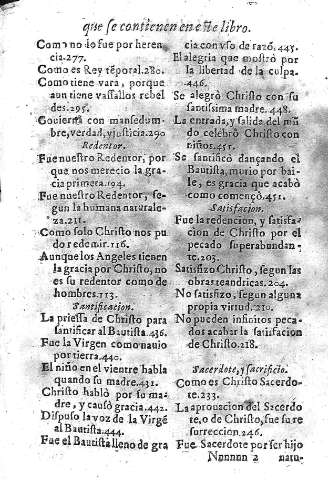 que se contienen en este libro.
Como no lo fue por heren
cia.277.
Como es Rey tẽporal.280.
Como tiene vara, porque
aun tiene vassallos rebel
des.295.
Gouierna con mansedum-
bre, verdad, y justicia.290
Redentor.
Fue nuestro Redentor, por
que nos merecio la gra-
cia primera.104.
Fue nuestro Redentor, se-
gun la humana naturale-
za.211.
Como solo Christo nos pu
do redemir.116.
Aunque los Angeles tienen
la gracia por Christo, no
es su redentor como de
hombres.113.
Santificacion.
La priessa de Christo para
santificar al Bautista.436.
Fue la Virgen como nauio
por tierra.440.
El niño en el vientre habla
quando su madre.431.
Christo habló por su ma-
dre, y causó gracia.442.
Dispuso la voz de la Virgẽ
al Bautista.444.
Fue el Bautista lleno de gra
cia con vso de razõ.445.
El alegria que mostró por
la libertad de la culpa.
446.
Se alegrò Christo con su
santissima madre.448.
La entrada, y salida del mũ
do celebrò Christo con
niños.451.
Se santificò dançando el
Bautista, murio por bai-
le, es gracia que acabò
como començó.451.
Satisfacion.
Fue la redencion, y satisfa-
cion de Christo por el
pecado superabundan-
te.203.
Satisfizo Christo, segun las
obras teandricas.204.
No satisfizo, segun alguna
propia virtud.210.
No pueden infinitos peca-
dos acabar la satisfacion
de Christo.218.
Sacerdote, y sacrificio.
Como es Christo Sacerdo-
te.233.
La aprouacion del Sacerdo
te, o de Christo, fue su re
surreccion.246.
Fue Sacerdote por ser hijo
Nnnnn 2 natu-